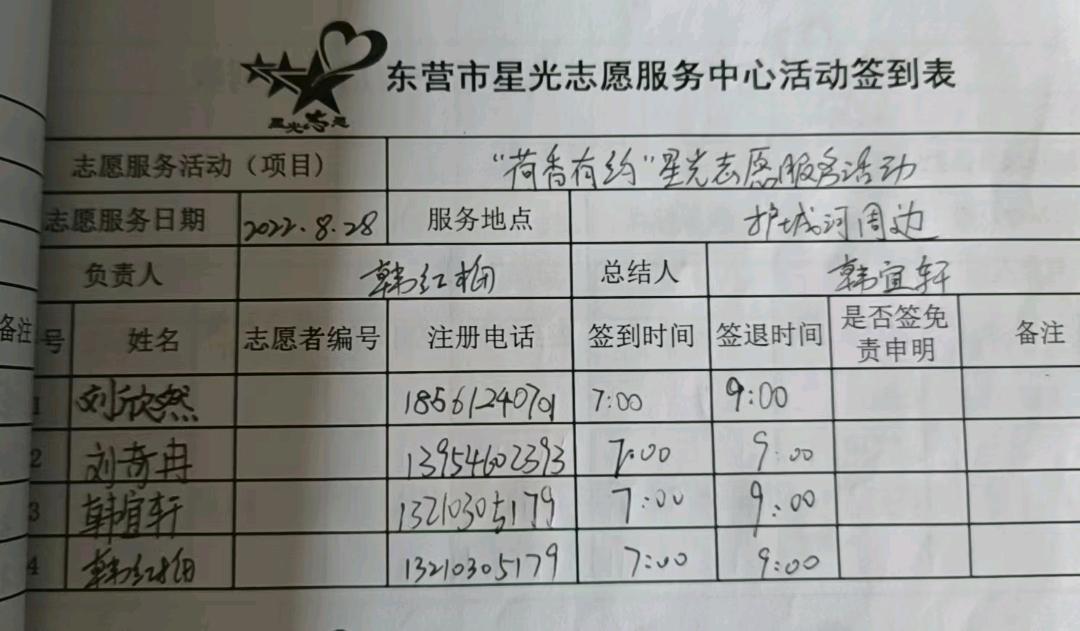 东营市星光志愿服务中心活动签到表
星光志愿
志愿服务活动（项目） “荷香有约”星光志愿服务活动
志愿服务日期 2022.8.28 服务地点 护城河周边
负责人 韩红梅 总结人 韩宜轩
备注 号 姓名 志愿者编号 注册电话 签到时间 签退时间 是否签免责申明 备注
1 刘欣然 18561240701 7:00 9:00
2 刘奇冉 13954602393 7:00 9:00
3 韩宜轩 13210305179 7:00 9:00
4 韩红梅 13210305179 7:00 9:00